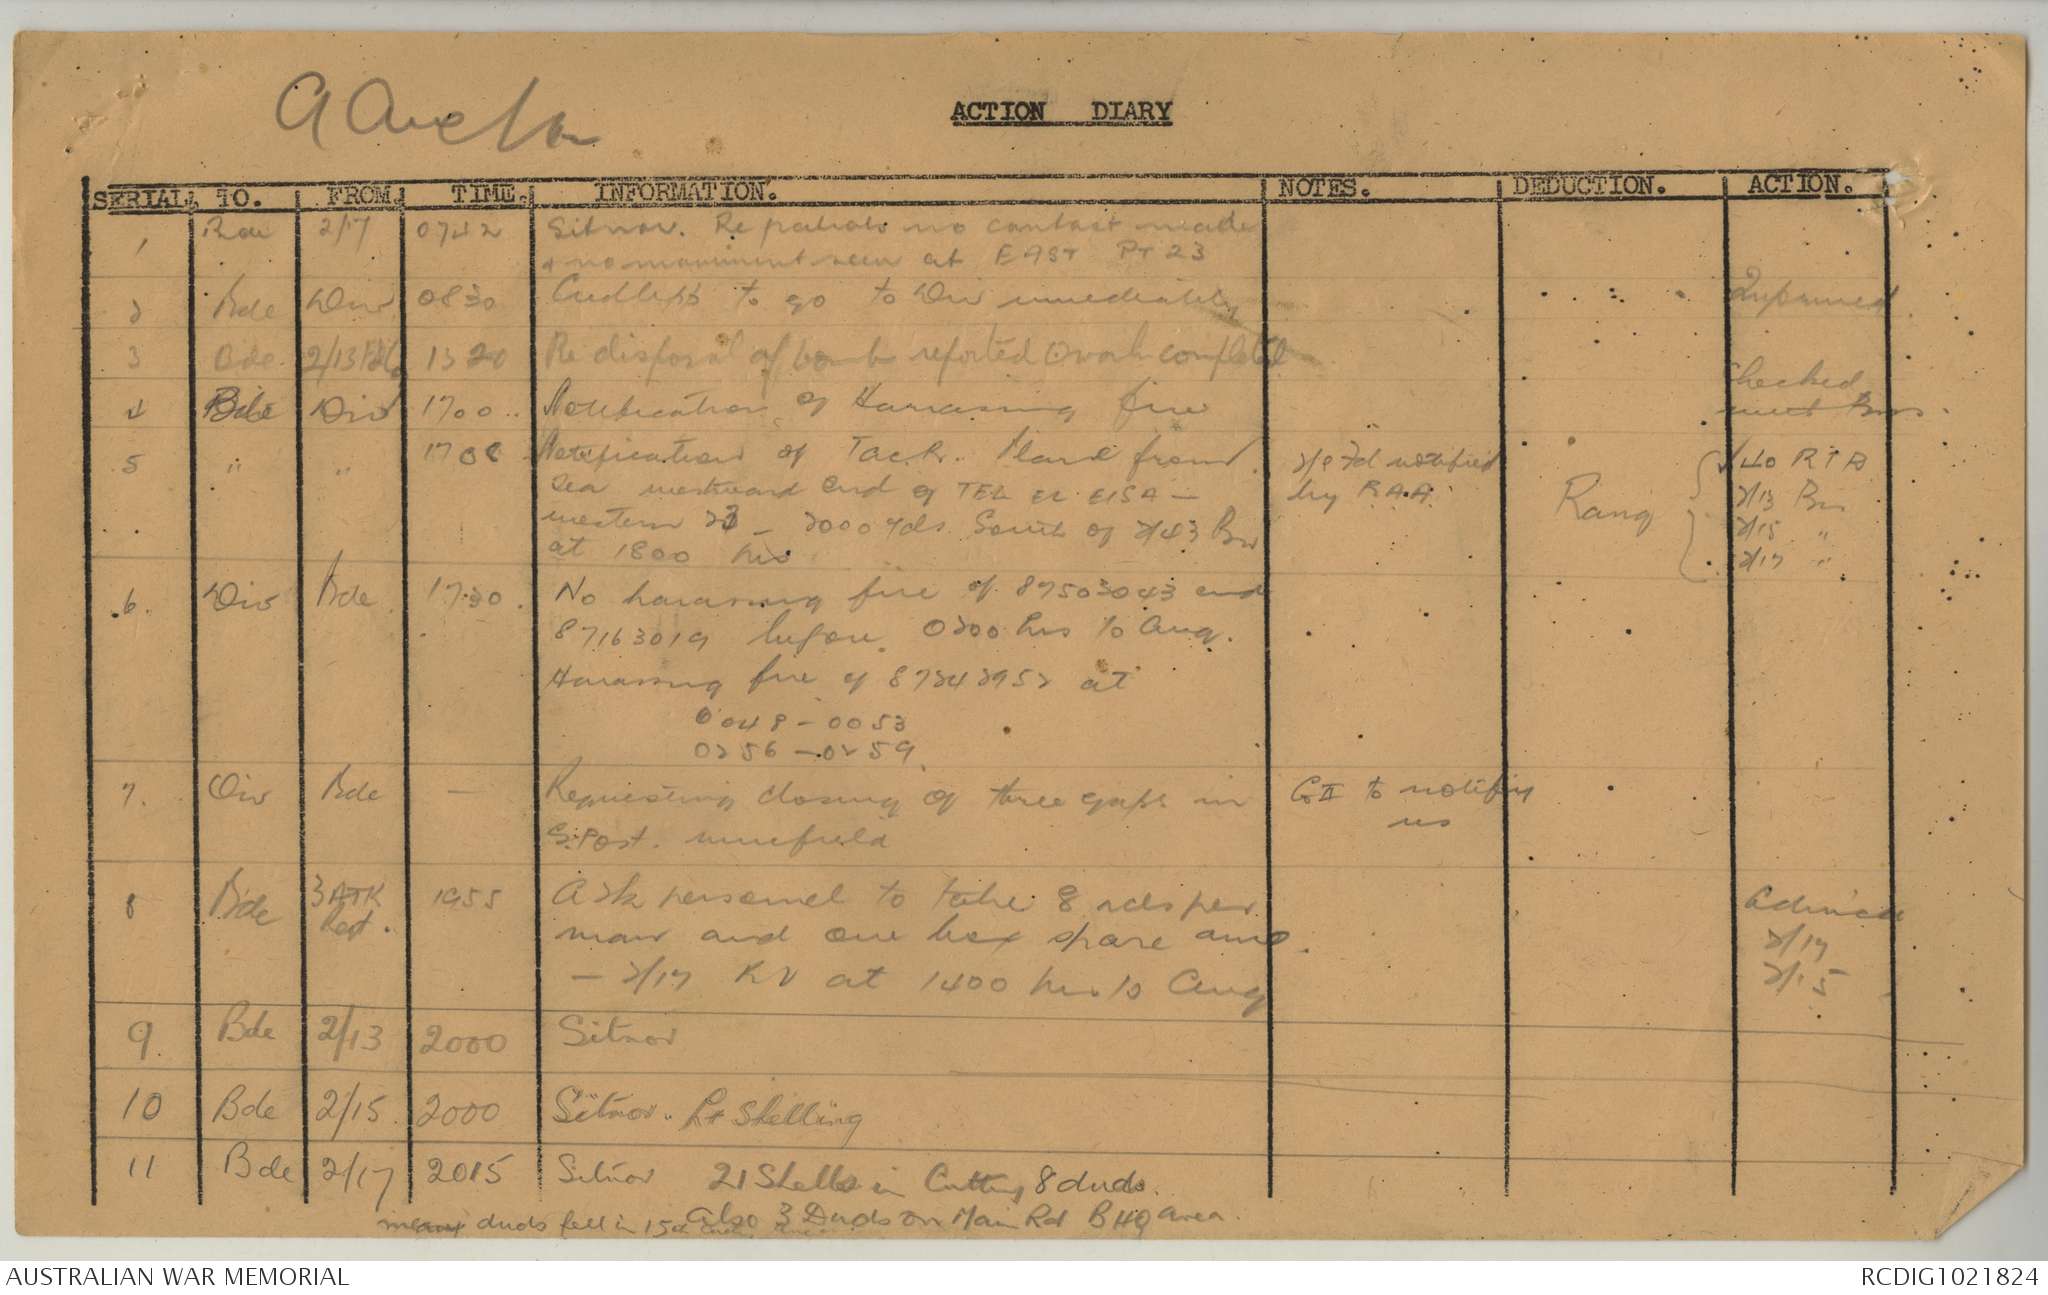 ACTION DIARY
SERIAL. TO. FROM. TIME. INFORMATION. NOTES. DEDUCTION. ACTION.
1 Bde 2/17 0742 Sitnor. Re patrols no contact made
& no movement seen at EAST PT 23
2 Bde Div 0830 to go to Div immediately Informed
3 Bde 2/13 1320 Re disposal of bomb reported work completed
4 Bde Div 1700 Notification of Harassing fire Checked
5 " " 1708 Notification of Tac.R. Plane from notified Rang 40 R T R
Sea westward end of TEL EL EISA - by RAA. 2/13 Bn
western 23 - 2000 yds South of 2/43 Bn 2/15 "
at 1800 hrs 2/17 "
6. Div Bde 1730. No harassing fire of 87503043 and
87163019 before 0200 hrs 10 Aug.
Harassing fire of 87242952 at
0048-0053
0256-0259
7. Div Bde - Requesting closing of three gaps in GII to notify
S. Post. minefield us
8 Bde 3 ATK 1955 Ask personnel to take 8 rds per Advised
Regt. man and one box spare amo 2/17
- 2/17 RV at 1400 hrs 10 Aug 2/15
9 Bde 2/13 2000 Sitnor
10 Bde 2/15 2000 Sitnor. Lt Shelling
11 Bde 2/17 2015 Sitnor 21 Shells in Cutting 8 duds.
Also 3 Duds on Main Rd BHQ area.
many duds fell in 15
AUSTRALIAN WAR MEMORIAL RCDIG1021824